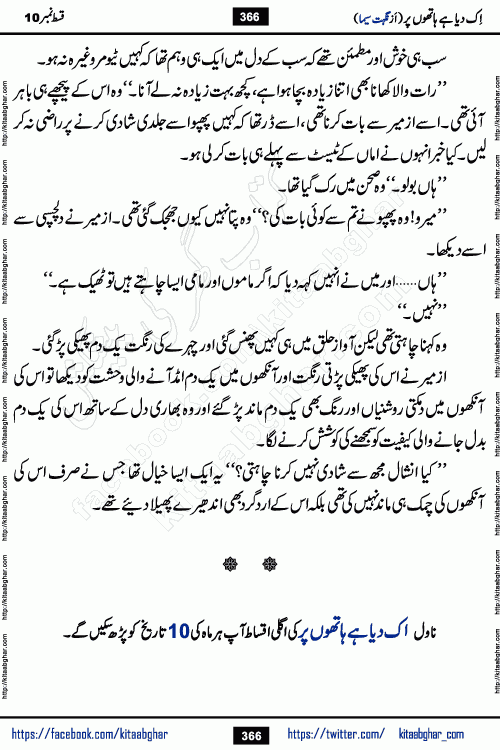 اِک دیا ہے ہاتھوں پر (از نگہت سیما)
366
قسط نمبر 10
سب ہی خوش اور مطمئن تھے کہ سب کے دل میں ایک ہی وہم تھا کہ کہیں ٹیومر وغیرہ نہ ہو۔
’’رات والا کھانا بھی اتنا زیادہ بچا ہوا ہے، کچھ بہت زیادہ نہ لے آنا۔‘‘ وہ اس کے پیچھے ہی باہر
آئی تھی۔ اسے ازمیر سے بات کرنا تھی، اسے ڈر تھا کہ کہیں پھپو اسے جلدی شادی کرنے پر راضی نہ کر
لیں۔ کیا خبر انہوں نے اماں کے ٹیسٹ سے پہلے ہی بات کر لی ہو۔
’’ہاں بولو۔‘‘ وہ صحن میں رک گیا تھا۔
’’میرو! وہ پھپو نے تم سے کوئی بات کی؟‘‘ وہ پتا نہیں کیوں جھجک گئی تھی۔ ازمیر نے دلچسپی سے
اسے دیکھا۔
’’ہاں......اور میں نے انہیں کہہ دیا کہ اگر ماموں اور مامی ایسا چاہتے ہیں تو ٹھیک ہے۔‘‘
’’نہیں۔‘‘
وہ کہنا چاہتی تھی لیکن آواز حلق میں ہی کہیں پھنس گئی اور چہرے کی رنگت یک دم پھیکی پڑ گئی۔
ازمیر نے اس کی پھیکی پڑتی رنگت اور آنکھوں میں یک دم امڈ آنے والی وحشت کو دیکھا تو اس کی
آنکھوں میں دمکتی روشنیاں اور رنگ بھی یک دم ماند پڑ گئے اور وہ بھاری دل کے ساتھ اس کی یک دم
بدل جانے والی کیفیت کو سمجھنے کی کوشش کرنے لگا۔
’’کیا انشال مجھ سے شادی نہیں کرنا چاہتی؟‘‘ یہ ایک ایسا خیال تھا جس نے صرف اس کی
آنکھوں کی چمک ہی ماند نہیں کی تھی بلکہ اس کے اردگرد بھی اندھیرے پھیلا دیئے تھے۔
ناول اک دیا ہے ہاتھوں پر کی اگلی اقساط آپ ہر ماہ کی 10 تاریخ کو پڑھ سکیں گے۔
https://facebook.com/kitaabghar
366
https://twitter.com/ kitaabghar_com
http://kitaabghar.com